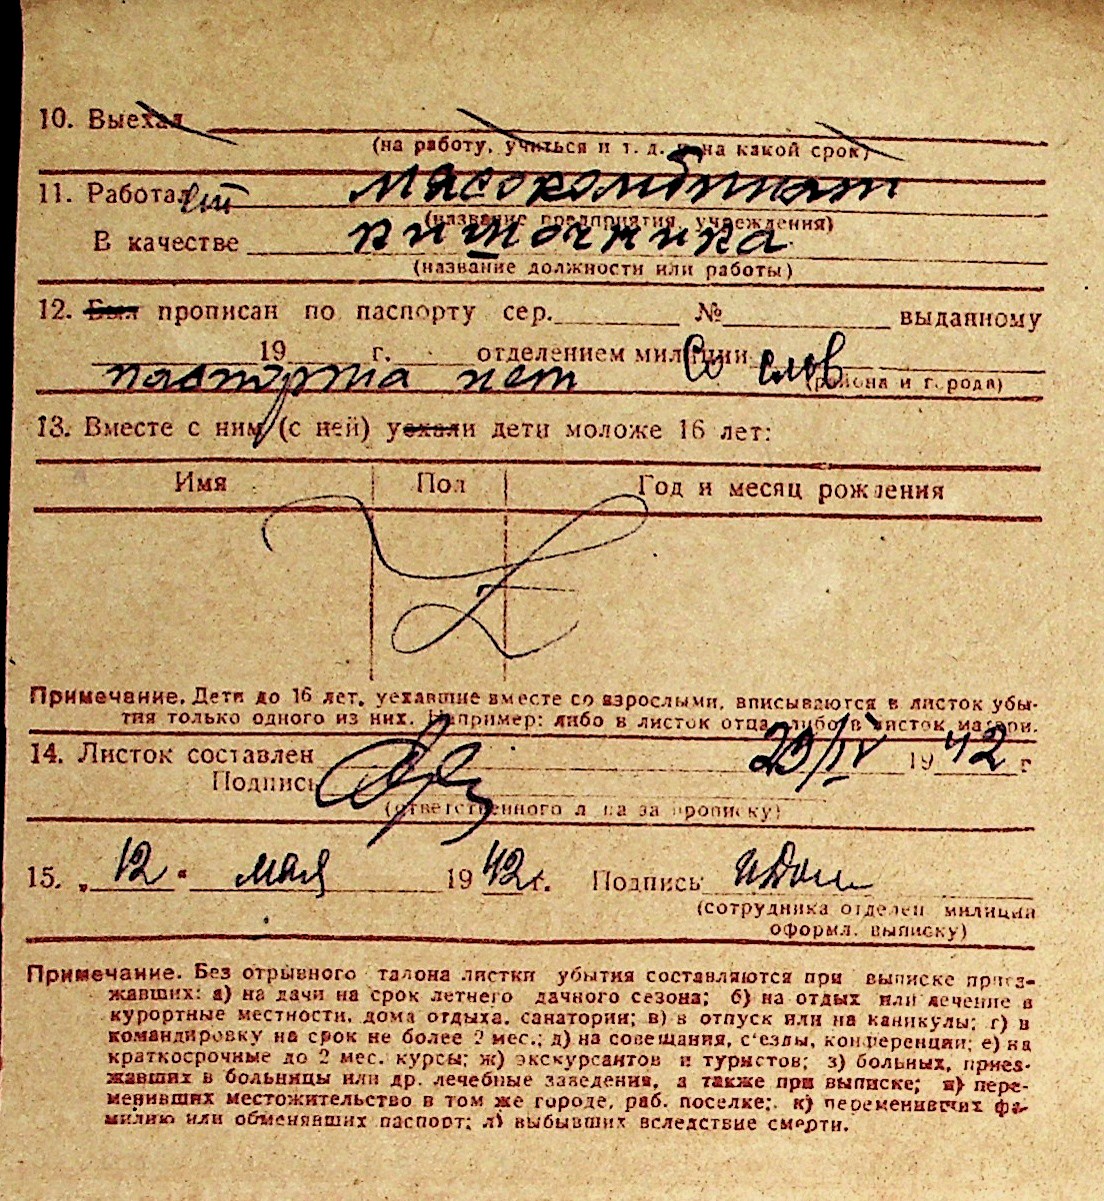 10. Выехал
(на работу, учиться и т. д. и на какой срок)
11. Работает мясокомбинат
(название предприятия, учреждения)
В качестве
(название должности или работы)
12. Был прописан по паспорту сер. № выданному
19 г. отделением милиции Со слов
паспорта нет (района и города)
13. Вместе с ним (с ней) уехали дети моложе 16 лет:
Имя Пол Год и месяц рождения
Примечание. Дети до 16 лет, уехавшие вместе со взрослыми, вписываются в листок убы-
тия только одного из них. Например: либо в листок отца, либо в листок матери.
14. Листок составлен 29/IV 1942 г
Подпись
(ответственного лица за прописку)
15. „12" мая 1942 г. Подпись
(сотрудника отделен милиции
оформл. выписку)
Примечание. Без отрывного талона листки убытия составляются при выписке приез-
жавших: а) на дачи на срок летнего дачного сезона; б) на отдых или лечение в
курортные местности, дома отдыха, санатории; в) в отпуск или на каникулы; г) в
командировку на срок не более 2 мес.; д) на совещания, с'езды, конференции; е) на
краткосрочные до 2 мес. курсы; ж) экскурсантов и туристов; з) больных, приез-
жавших в больницы или др. лечебные заведения, а также при выписке; и) пере-
менивших местожительство в том же городе, раб. поселке; к) переменивших фа-
милию или обменявших паспорт; л) выбывших вследствие смерти.